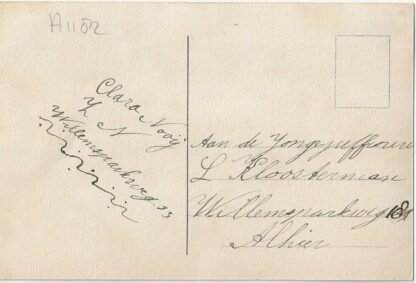 A1182
Clara Nooij
Z N
Willemsparkweg 33
Aan de Jongejuffrouw
L Kloosterman
Willemsparkweg 181
Alhier